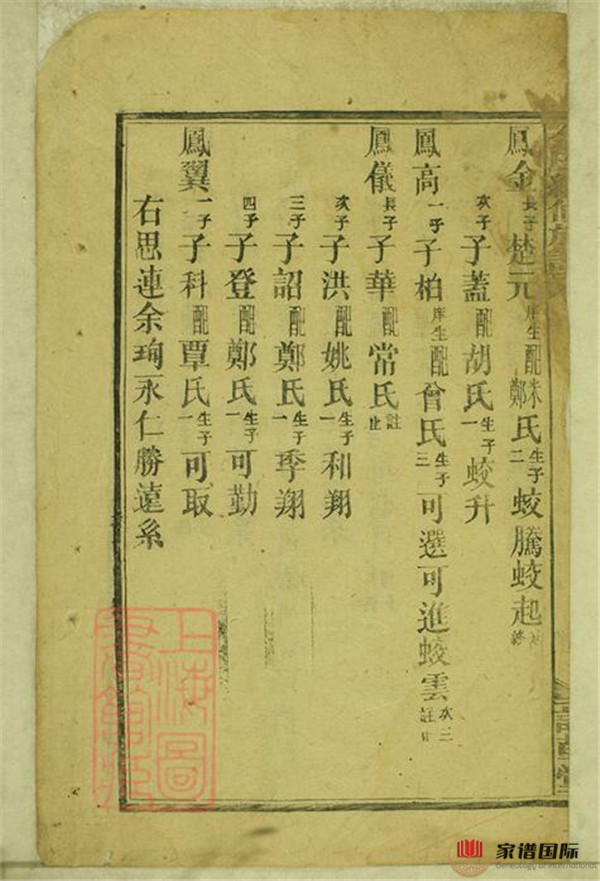 鳳金長子楚元庠生配朱鄭氏生子二蛟騰蛟起
次子子蓋配胡氏生子一蛟升
鳳高一子子柏庠生配曾氏生子三可選可進蛟雲次三註止
鳳儀長子子華配常氏註止
次子子洪配姚氏生子一和翔
三子子詔配鄭氏生子一季翔
四子子登配鄭氏生子一可勤
鳳翼一子子科配覃氏生子一可取
右思連余珣永仁勝遠系
上海圖書館藏
家谱国际
Genealogy of International